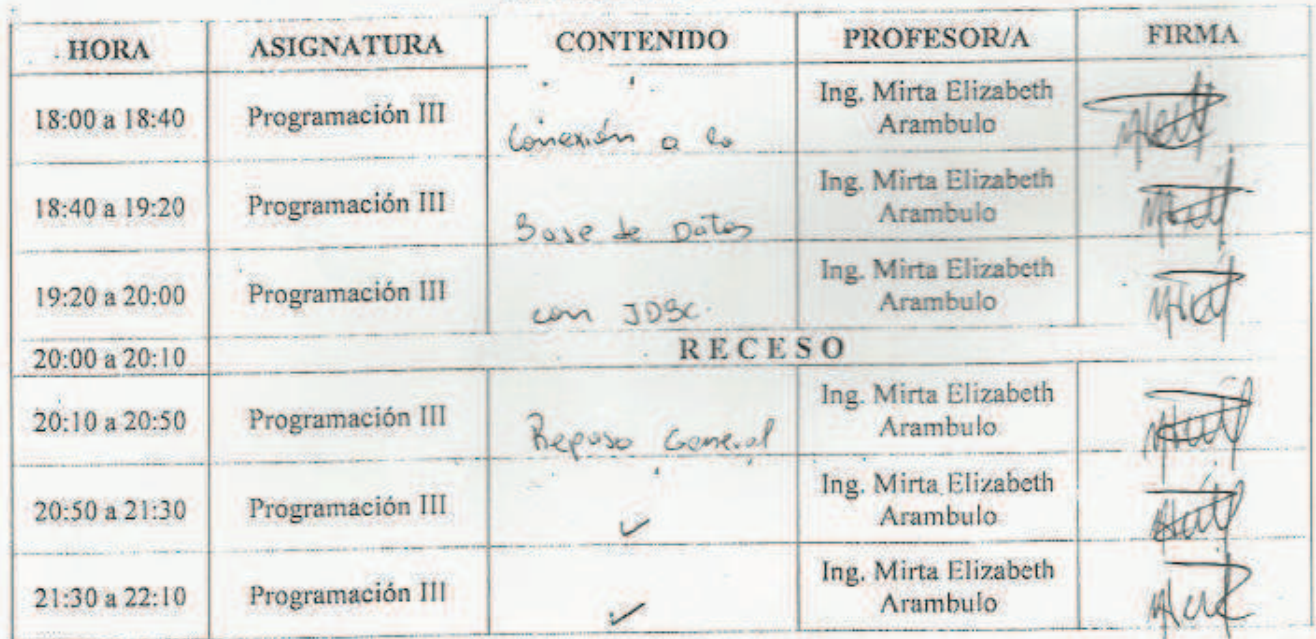 HORA ASIGNATURA CONTENIDO PROFESOR/A FIRMA
18:00 a 18:40 Programación III Conexión a la Ing. Mirta Elizabeth Arambulo
18:40 a 19:20 Programación III Base de Datos Ing. Mirta Elizabeth Arambulo
19:20 a 20:00 Programación III con JDBC. Ing. Mirta Elizabeth Arambulo
20:00 a 20:10 RECESO
20:10 a 20:50 Programación III Repaso General Ing. Mirta Elizabeth Arambulo
20:50 a 21:30 Programación III ✓ Ing. Mirta Elizabeth Arambulo
21:30 a 22:10 Programación III ✓ Ing. Mirta Elizabeth Arambulo